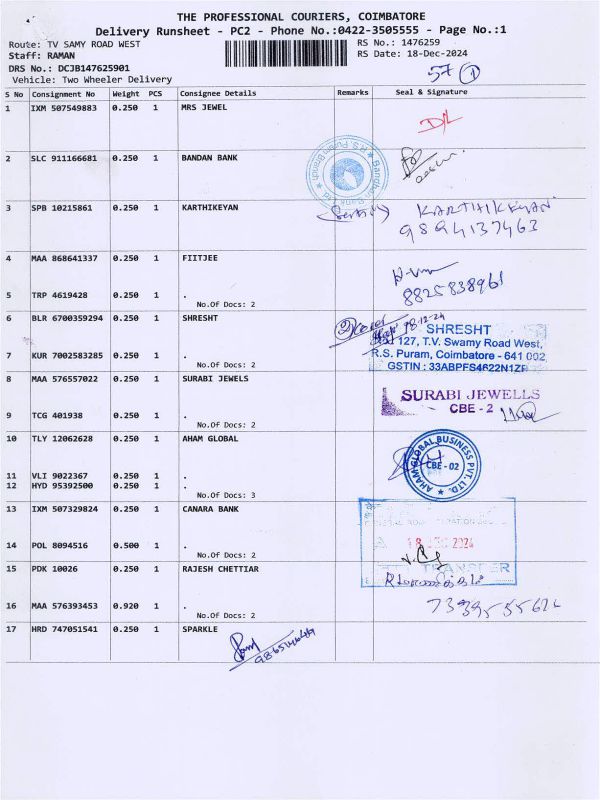 THE PROFESSIONAL COURIERS, COIMBATORE
Delivery Runsheet - PC2 - Phone No.:0422-3505555 - Page No.:1
Route: TV SAMY ROAD WEST RS No.: 1476259
Staff: RAMAN RS Date: 18-Dec-2024
DRS No.: DCJB147625901
Vehicle: Two Wheeler Delivery 57 1
S No Consignment No Weight PCS Consignee Details Remarks Seal & Signature
1 IXM 507549883 0.250 1 MRS JEWEL
D/L
2 SLC 911166681 0.250 1 BANDAN BANK
Bandhan Bank Ltd R.S. Puram Branch
3 SPB 10215861 0.250 1 KARTHIKEYAN KARTHIKEYAN
9894137463
4 MAA 868641337 0.250 1 FIITJEE
8825838961
5 TRP 4619428 0.250 1 .
No.Of Docs: 2
6 BLR 6700359294 0.250 1 SHRESHT SHRESHT
127, T.V. Swamy Road West,
7 KUR 7002583285 0.250 1 . R.S. Puram, Coimbatore - 641 002
No.Of Docs: 2 GSTIN : 33ABPFS4622N1ZP
8 MAA 576557022 0.250 1 SURABI JEWELS
SURABI JEWELLS
CBE - 2
9 TCG 401938 0.250 1 .
No.Of Docs: 2
10 TLY 12062628 0.250 1 AHAM GLOBAL
AHAM GLOBAL BUSINESS PVT. LTD.
CBE - 02
11 VLI 9022367 0.250 1 .
12 HYD 95392500 0.250 1 .
No.Of Docs: 3
13 IXM 507329824 0.250 1 CANARA BANK
18 DEC 2024
14 POL 8094516 0.500 1 .
No.Of Docs: 2
TRANSFER
15 PDK 10026 0.250 1 RAJESH CHETTIAR
16 MAA 576393453 0.920 1 .
No.Of Docs: 2
17 HRD 747051541 0.250 1 SPARKLE